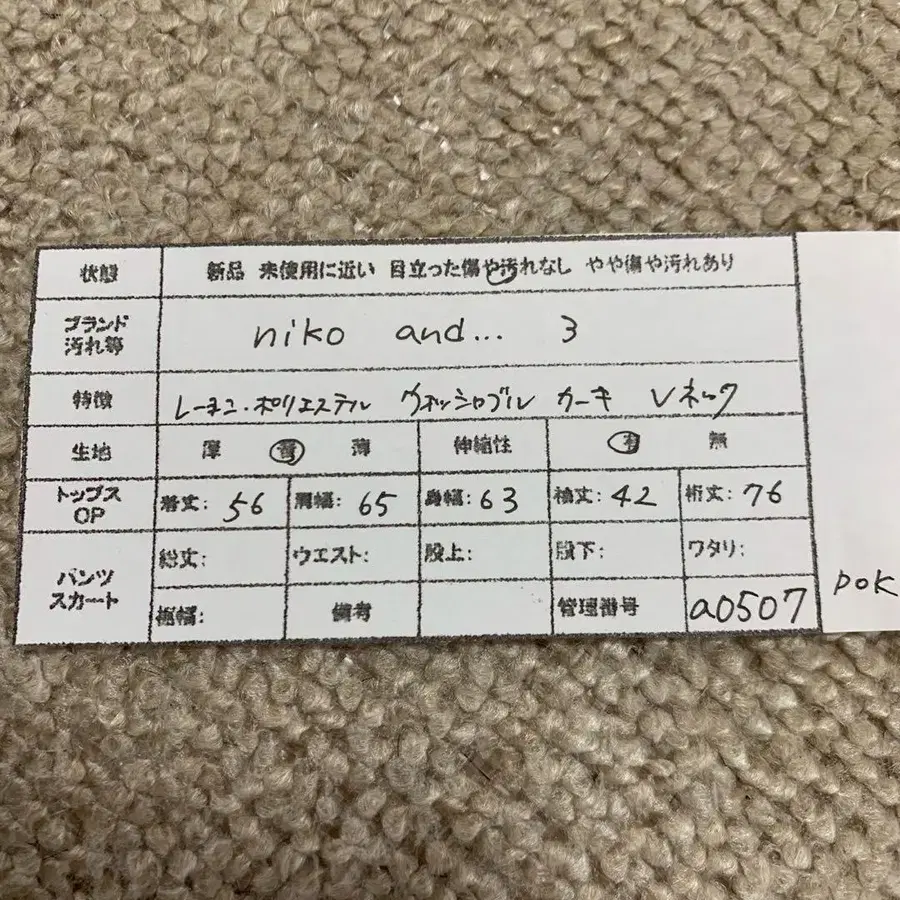 状態 新品 未使用に近い 目立った傷や汚れなし やや傷や汚れあり
ブランド
汚れ等
niko and... 3
特徴 レーヨン・ポリエステル ウォッシャブル カーキ Vネック
生地 厚 普 薄 伸縮性 有 無
トップス
OP
着丈: 56 肩幅: 65 身幅: 63 袖丈: 42 裄丈: 76
パンツ
スカート
総丈: ウエスト: 股上: 股下: ワタリ:
裾幅: 備考 管理番号 a0507
pok